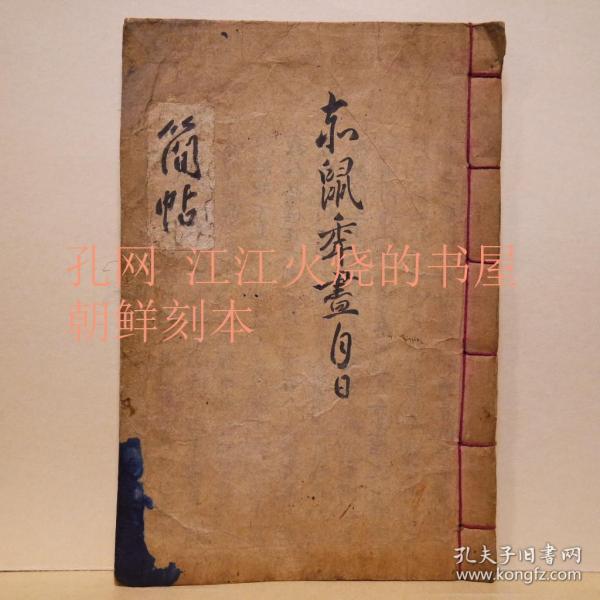 赤鼠季畫月日
簡帖
孔网 江江火烧的书屋
朝鲜刻本
孔夫子旧书网
www.kongfz.com